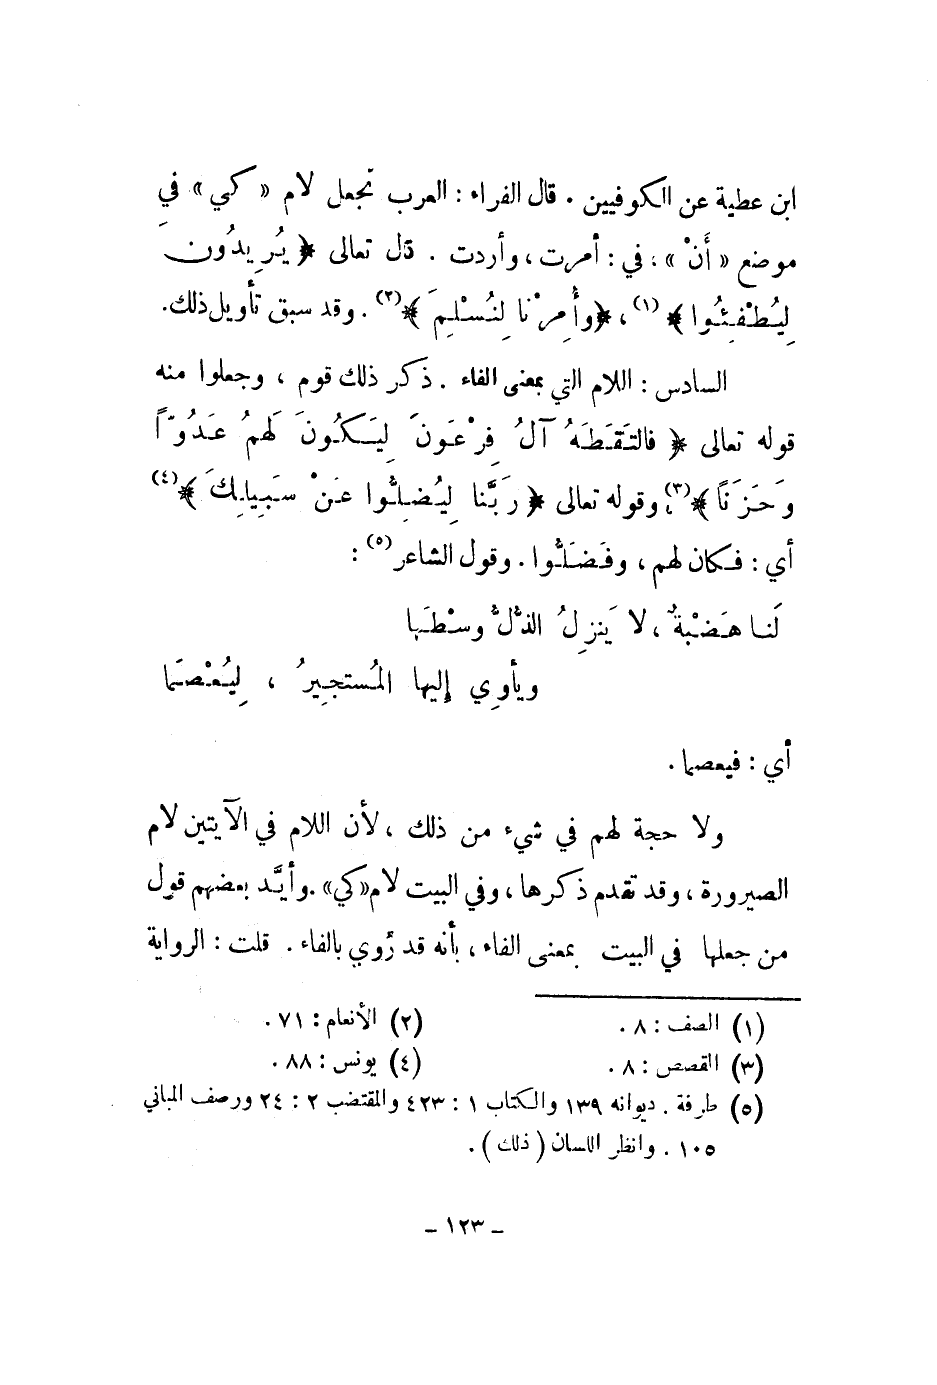 ابن عطية عن الكوفيين . قال الفراء : العرب تجعل لام « كي » في
موضع « أَنْ » ، في : أمرت ، وأردت . قال تعالى ﴿ يُرِيدُونَ
لِيُطْفِئُوا ﴾ (١) ، ﴿وأُمِرْنا لِنُسْلِمَ ﴾(٢) . وقد سبق تأويل ذلك.
السادس : اللام التي بمعنى الفاء . ذكر ذلك قوم ، وجعلوا منه
قوله تعالى ﴿ فالتَقَطَهُ آلُ فِرْعَونَ لِيَكُونَ لَهمُ عَدُوّاً
وَحَزَناً ﴾(٣)، وقوله تعالى ﴿ رَبَّنا لِيُضِلُّوا عَنْ سَبِيلِكَ ﴾(٤)
أي : فكان لهم ، وفَضَلُّوا . وقول الشاعر (٥) :
لَنا هَضْبةٌ ، لا يَنزِلُ الذُّلُّ وسْطَها
ويأوِي إليها المُستجِيرُ ، لِيُعْصَما
أي : فيعصما .
ولا حجة لهم في شيء من ذلك ، لأن اللام في الآيتين لام
الصيرورة ، وقد تقدم ذكرها ، وفي البيت لام «كي» . وأيَّد بعضهم قول
من جعلها في البيت بمعنى الفاء ، بأنه قد رُوي بالفاء . قلت : الرواية
(١) الصف : ٨ . (٢) الأنعام : ٧١ .
(٣) القصص : ٨ . (٤) يونس : ٨٨ .
(٥) طرفة . ديوانه ١٣٩ والكتاب ١ : ٤٢٣ والمقتضب ٢ : ٢٤ ورصف المباني
١٠٥ . وانظر اللسان ( ذلك ) .
– ١٢٣ –